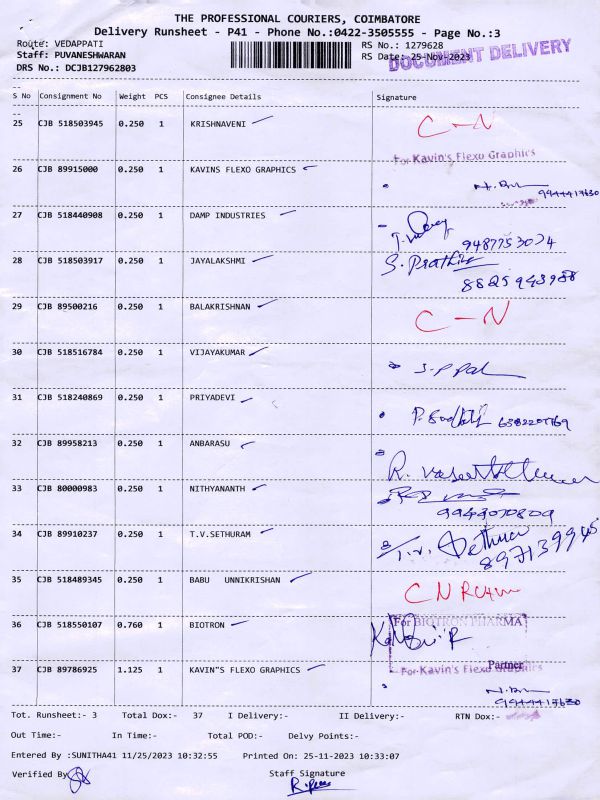 THE PROFESSIONAL COURIERS, COIMBATORE
Delivery Runsheet - P41 - Phone No.:0422-3505555 - Page No.:3
Route: VEDAPPATI RS No.: 1279628
Staff: PUVANESHWARAN RS Date: 25-Nov-2023 DOCUMENT DELIVERY
DRS No.: DCJB127962803
S No Consignment No Weight PCS Consignee Details Signature
25 CJB 518503945 0.250 1 KRISHNAVENI C-N
For Kavin's Flexo Graphics
26 CJB 89915000 0.250 1 KAVINS FLEXO GRAPHICS
27 CJB 518440908 0.250 1 DAMP INDUSTRIES
9487753074
28 CJB 518503917 0.250 1 JAYALAKSHMI S. Prathi
8825943988
29 CJB 89500216 0.250 1 BALAKRISHNAN C-N
30 CJB 518516784 0.250 1 VIJAYAKUMAR
31 CJB 518240869 0.250 1 PRIYADEVI
32 CJB 89958213 0.250 1 ANBARASU
33 CJB 80000983 0.250 1 NITHYANANTH
34 CJB 89910237 0.250 1 T.V.SETHURAM T.V. Sethura
35 CJB 518489345 0.250 1 BABU UNNIKRISHAN C N
36 CJB 518550107 0.760 1 BIOTRON For BIOTRON PHARMA
Partner
37 CJB 89786925 1.125 1 KAVIN"S FLEXO GRAPHICS For Kavin's Flexo Graphics
Tot. Runsheet:- 3 Total Dox:- 37 I Delivery:- II Delivery:- RTN Dox:-
Out Time:- In Time:- Total POD:- Delvy Points:-
Entered By :SUNITHA41 11/25/2023 10:32:55 Printed On: 25-11-2023 10:33:07
Verified By Staff Signature